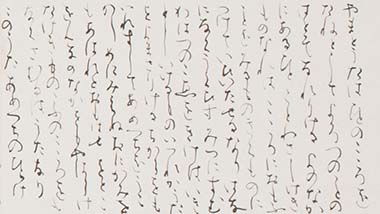 やまとうたはひとのこころを
たねとしてよろつのことの
はとそなれりけるよのなか
にあるひとことわさしけき
ものなれはこころにおもふこ
とをみるものきくものに
つけていひいたせるなりはな
になくうくひすみつにすむ
かはつのこゑをきけはいき
としいけるものいつれかうた
をよまさりけるちからをも
いれすしてあめつちをうこ
かしめにみえぬおにかみを
もあはれとおもはせをとこ
をんなのなかをもやはらけ
たけきもののふのこころをも
なくさむるはうたなり
このうたあめつちのひらけ